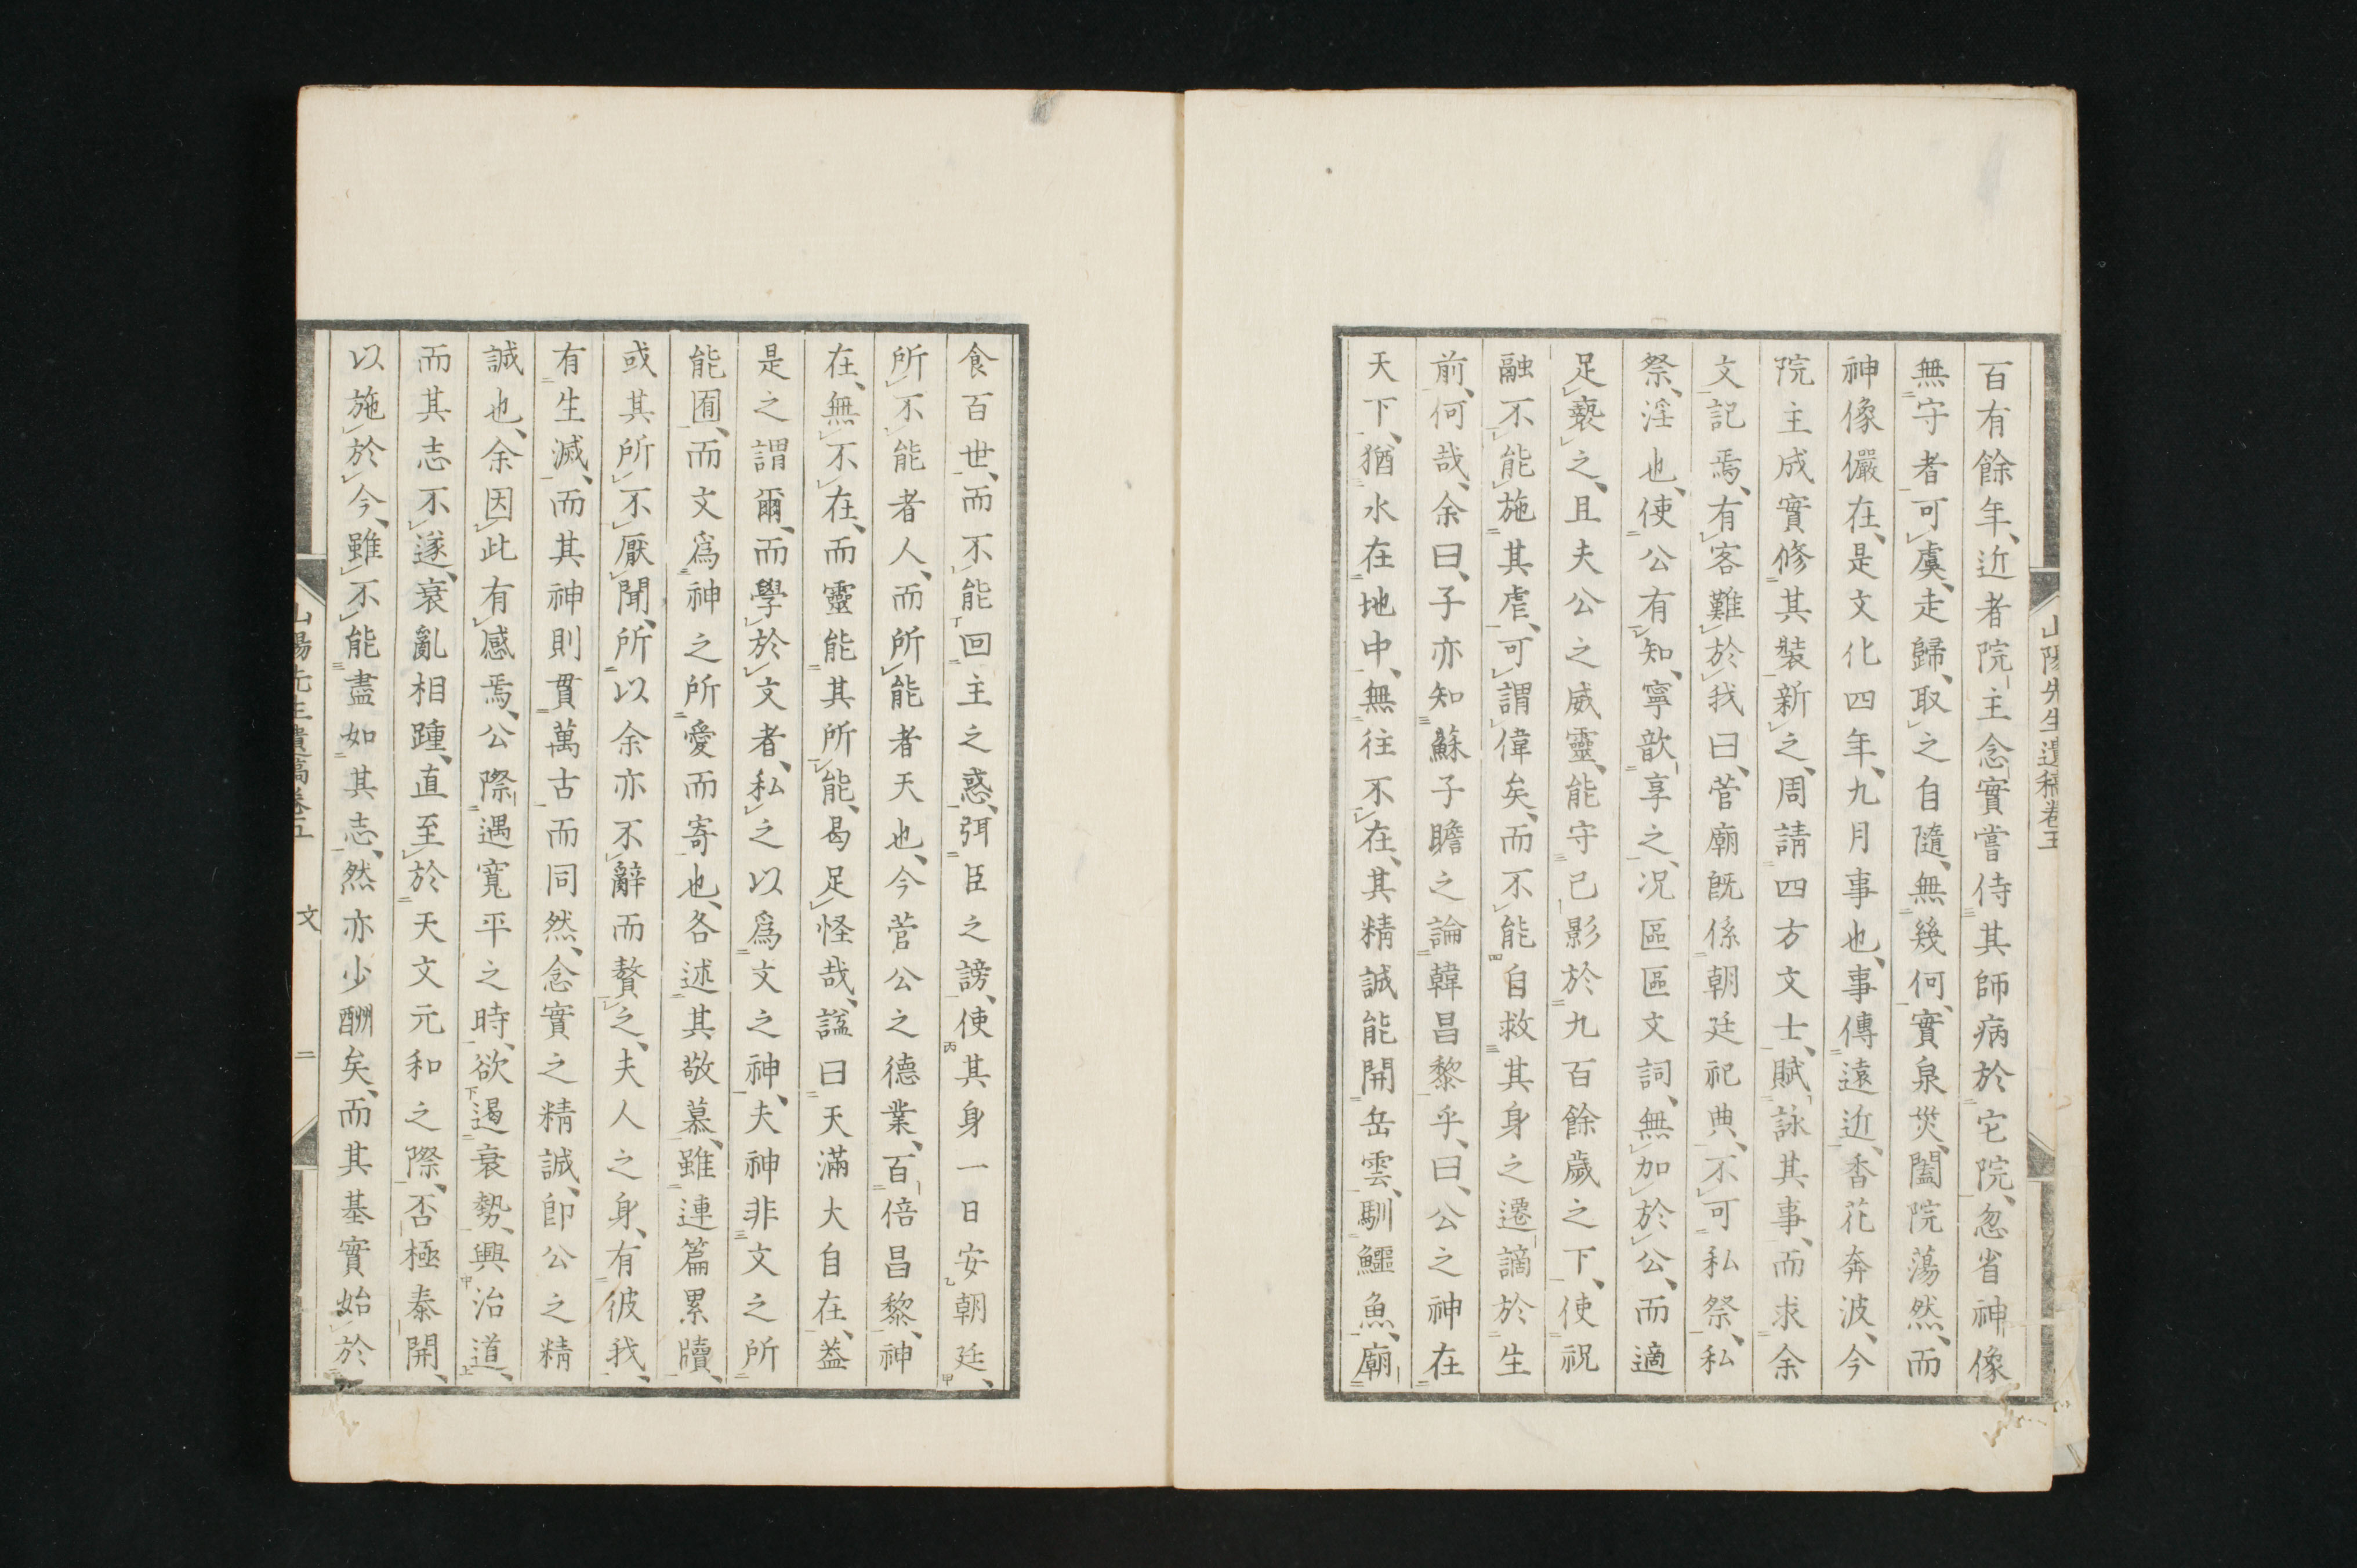 山陽先生遺稿卷五
百有餘年、近者院主念實嘗侍其師病於它院、忽省神像
無守者可虞、走歸、取之自隨、無幾何、實泉災、闔院蕩然、而
神像儼在、是文化四年、九月事也、事傳遠近、香花奔波、今
院主成實修其裝新之、周請四方文士、賦詠其事、而求余
文記焉、有客難於我曰、菅廟既係朝廷祀典、不可私祭、私
祭、淫也、使公有知、寧歆享之、况區區文詞、無加於公、而適
足褻之、且夫公之威靈、能守己影於九百餘歲之下、使祝
融不能施其虐、可謂偉矣、而不能自救其身之遷謫於生
前、何哉、余曰、子亦知蘇子瞻之論韓昌黎乎、曰、公之神在
天下、猶水在地中、無往不在、其精誠能開岳雲、馴鱷魚、廟
食百世、而不能回主之惑、弭臣之謗、使其身一日安朝廷、
所不能者人、而所能者天也、今菅公之德業、百倍昌黎、神
在、無不在、而靈能其所能、曷足怪哉、謚曰天滿大自在、蓋
是之謂爾、而學於文者、私之以爲文之神、夫神非文之所
能囿、而文爲神之所愛而寄也、各述其敬慕、雖連篇累牘、
或其所不厭聞、所以余亦不辭而贅之、夫人之身、有彼我、
有生滅、而其神則貫萬古而同然、念實之精誠、卽公之精
誠也、余因此有感焉、公際遇寬平之時、欲遏衰勢、興治道、
而其志不遂、衰亂相踵、直至於天文元和之際、否極泰開、
以施於今、雖不能盡如其志、然亦少酬矣、而其基實始於
山陽先生遺稿卷五　文　二